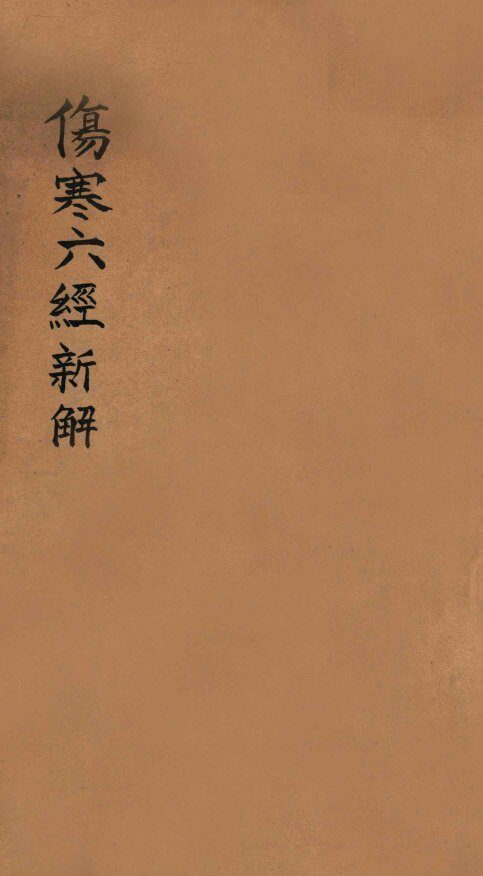 傷寒六經新解